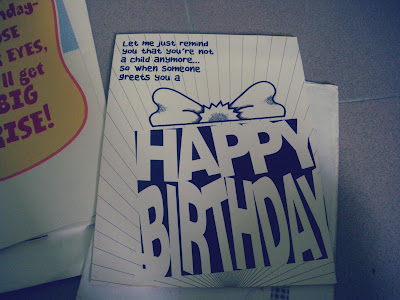 nday-
OSE
R EYES,
'll get
BIG
RISE!
Let me just remind
you that you're not
a child anymore...
so when someone
greets you a
HAPPY
BIRTHDAY